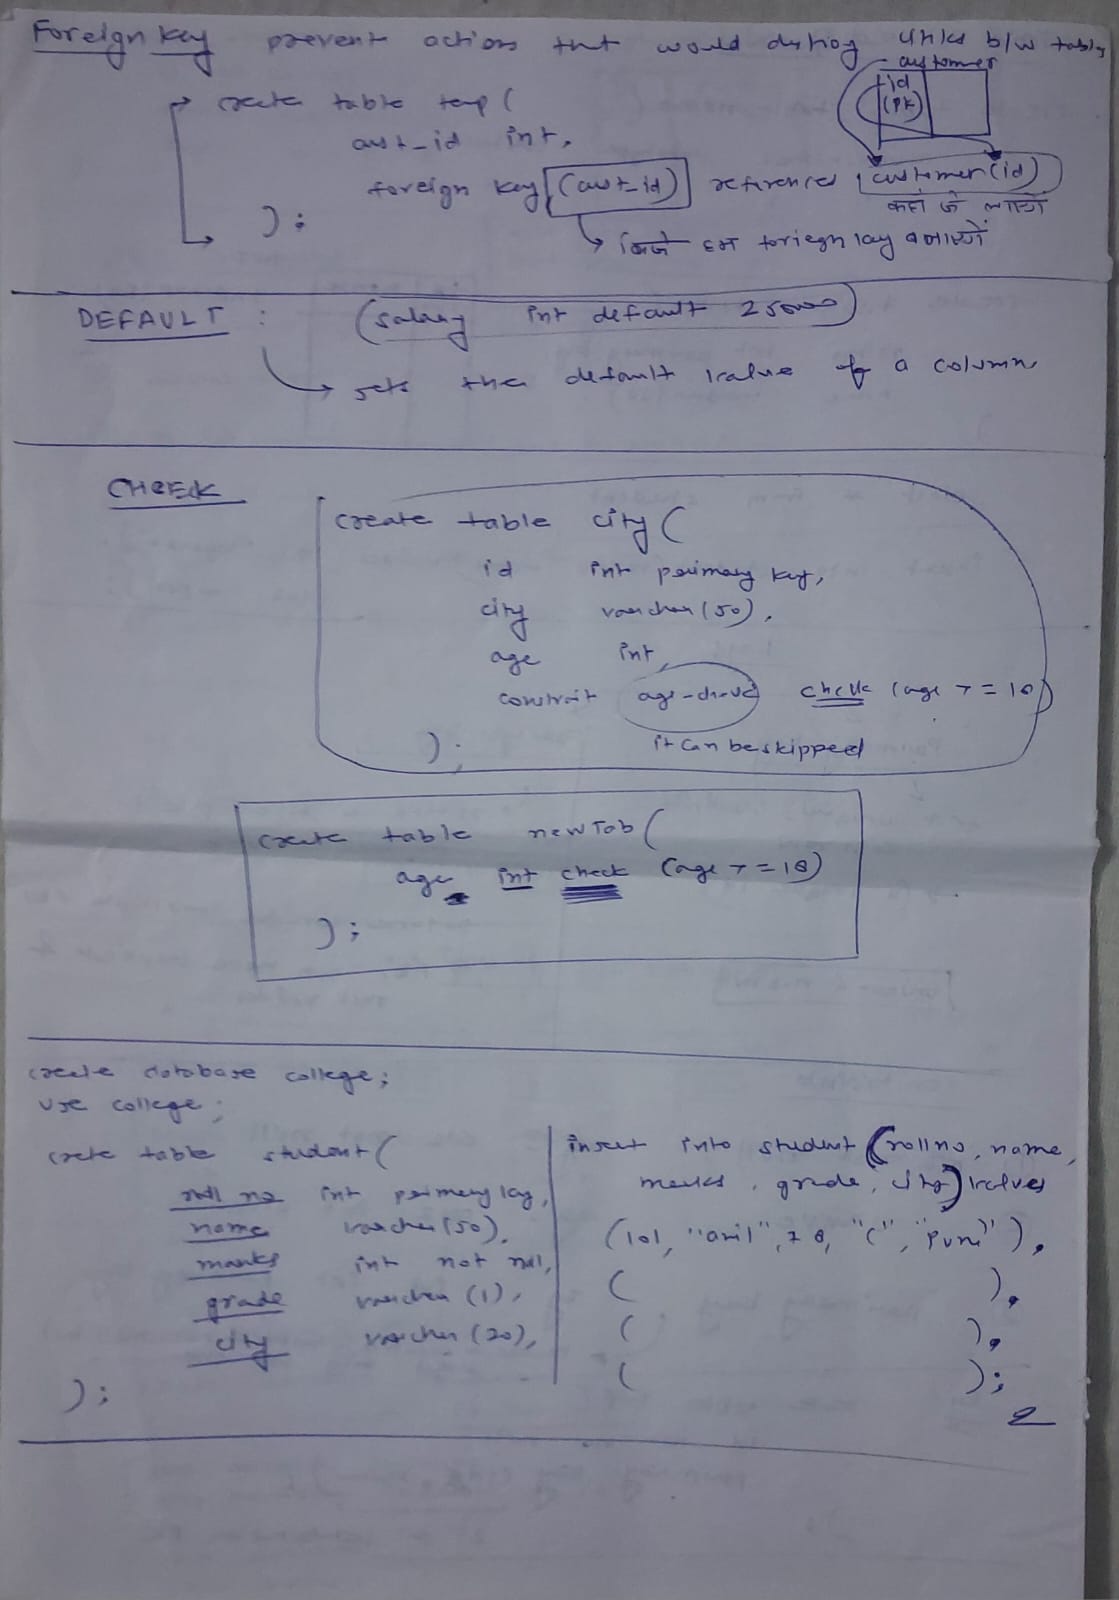 Foreign key prevent actions that would destroy links b/w tables
customer
id
(PK)
create table temp (
cust_id int,
foreign key (cust_id) references customer(id)
कहां से लाएगें
);
जिसे हम foriegn key बनाएगें
DEFAULT : (salary int default 25000)
sets the default value of a column
CHECK
create table city (
id int primary key,
city varchar(50),
age int,
constrait age-check check (age >= 18)
it can be skipped
);
create table newTab (
age int check (age >= 18)
);
create database college;
use college;
create table student (
roll no int primary key,
name varchar(50),
marks int not null,
grade varchar (1),
city varchar (20),
);
insert into student (rollno, name,
marks, grade, city) values
(101, "anil", 78, "C", "pune"),
( ),
( ),
( );
2